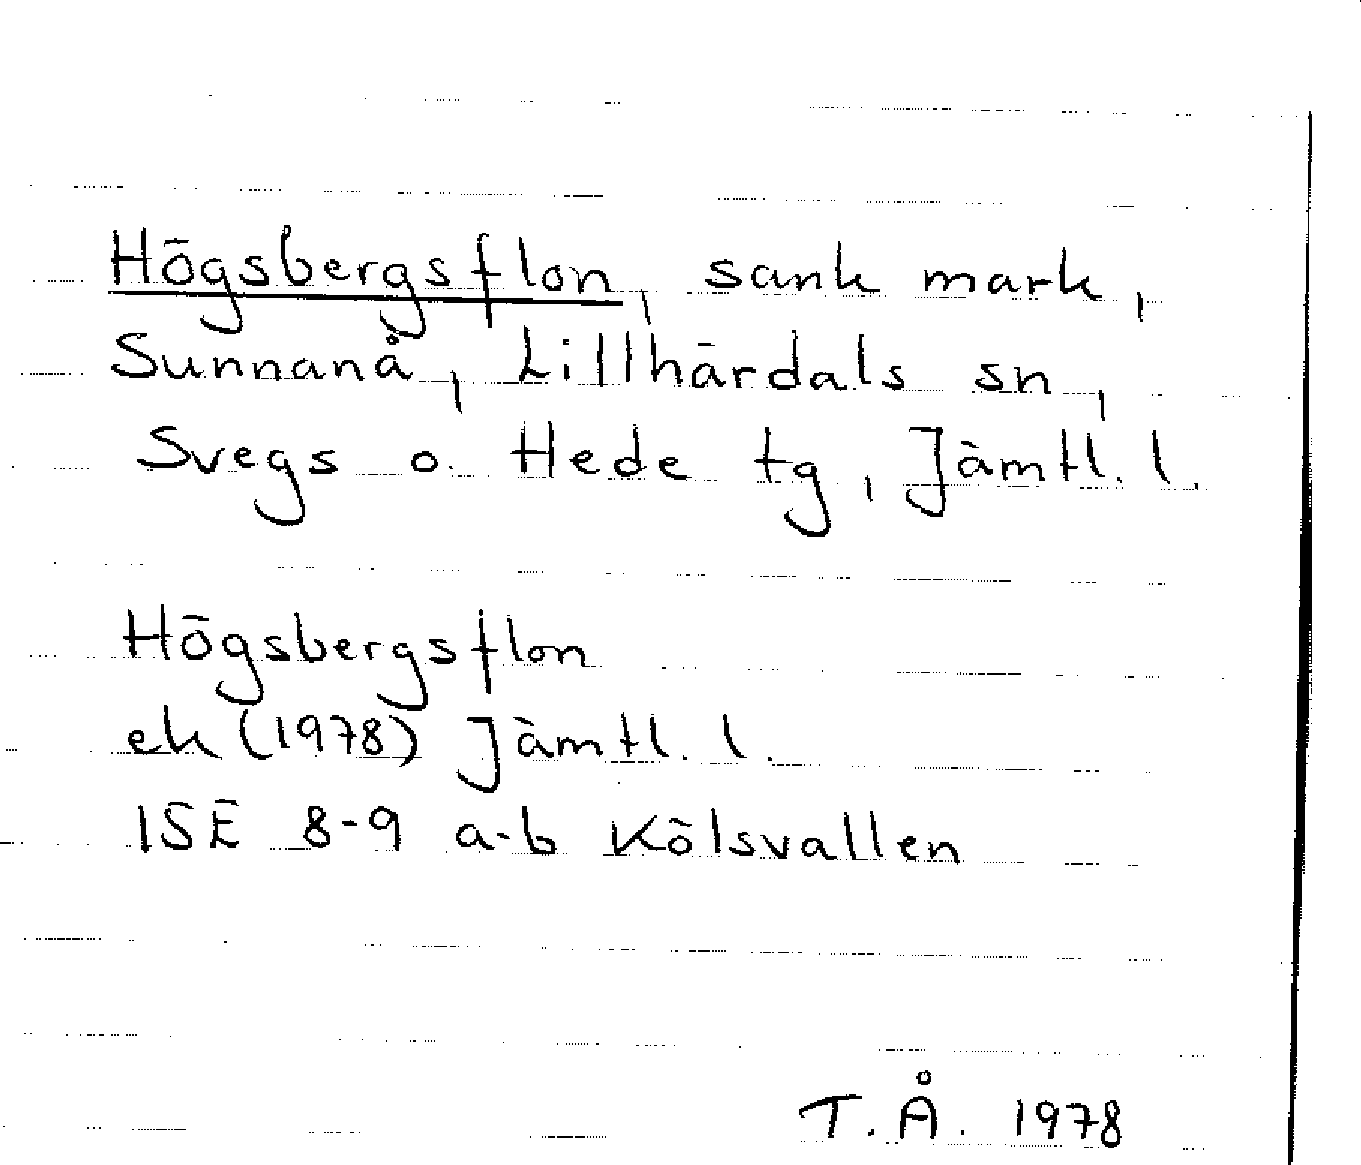 Högsbergsflon, sank mark,
Sunnanå, Lillhärdals sn,
Svegs o. Hede tg, Jämtl. l.
Högsbergsflon
ek (1978) Jämtl. l.
15E 8-9 a-b Kölsvallen
T.Å. 1978